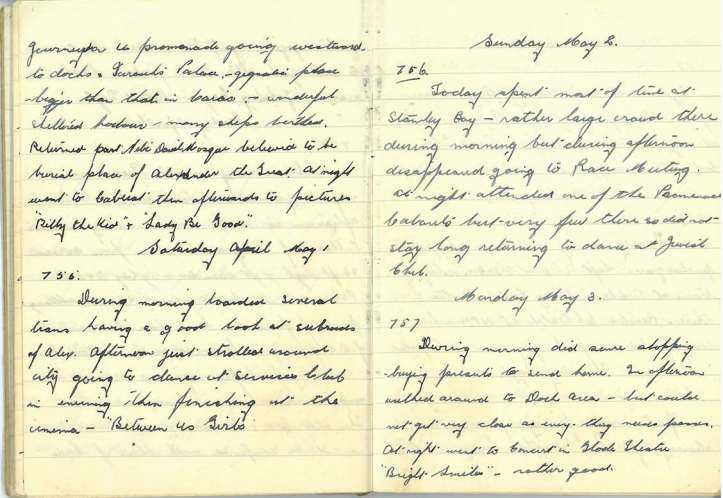 journeyed to promenade going westward
to docks & Farouk's Palace - gigantic place
- bigger than that in Cairo - wonderful
sheltered harbour - many ships berthed.
Returned past Nebi Daniel Mosque believed to be
burial place of Alexander the Great. At night
went to Cabaret then afterwards to pictures
"Billy the Kid" & "Lady Be Good".
Saturday April May 1
755.
During morning boarded several
trams having a good look at suburbs
of Alex. Afternoon just strolled around
city going to dance at Services Club
in evening then finishing at the
cinema - "Between Us Girls"
Sunday May 2.
756.
Today spent most of time at
Stanley Bay - rather large crowd there
during morning but during afternoon
disappeared going to Race Meeting.
At night attended one of the Promenade
Cabarets but very few there so did not
stay long returning to dance at Jewish
Club.
Monday May 3.
757
During morning did some shopping
- buying presents to send home. In afternoon
walked around to Dock area - but could
not get very close as they need passes.
At night went to Concert in Globe Theatre
"Bright Smiles" - rather good.